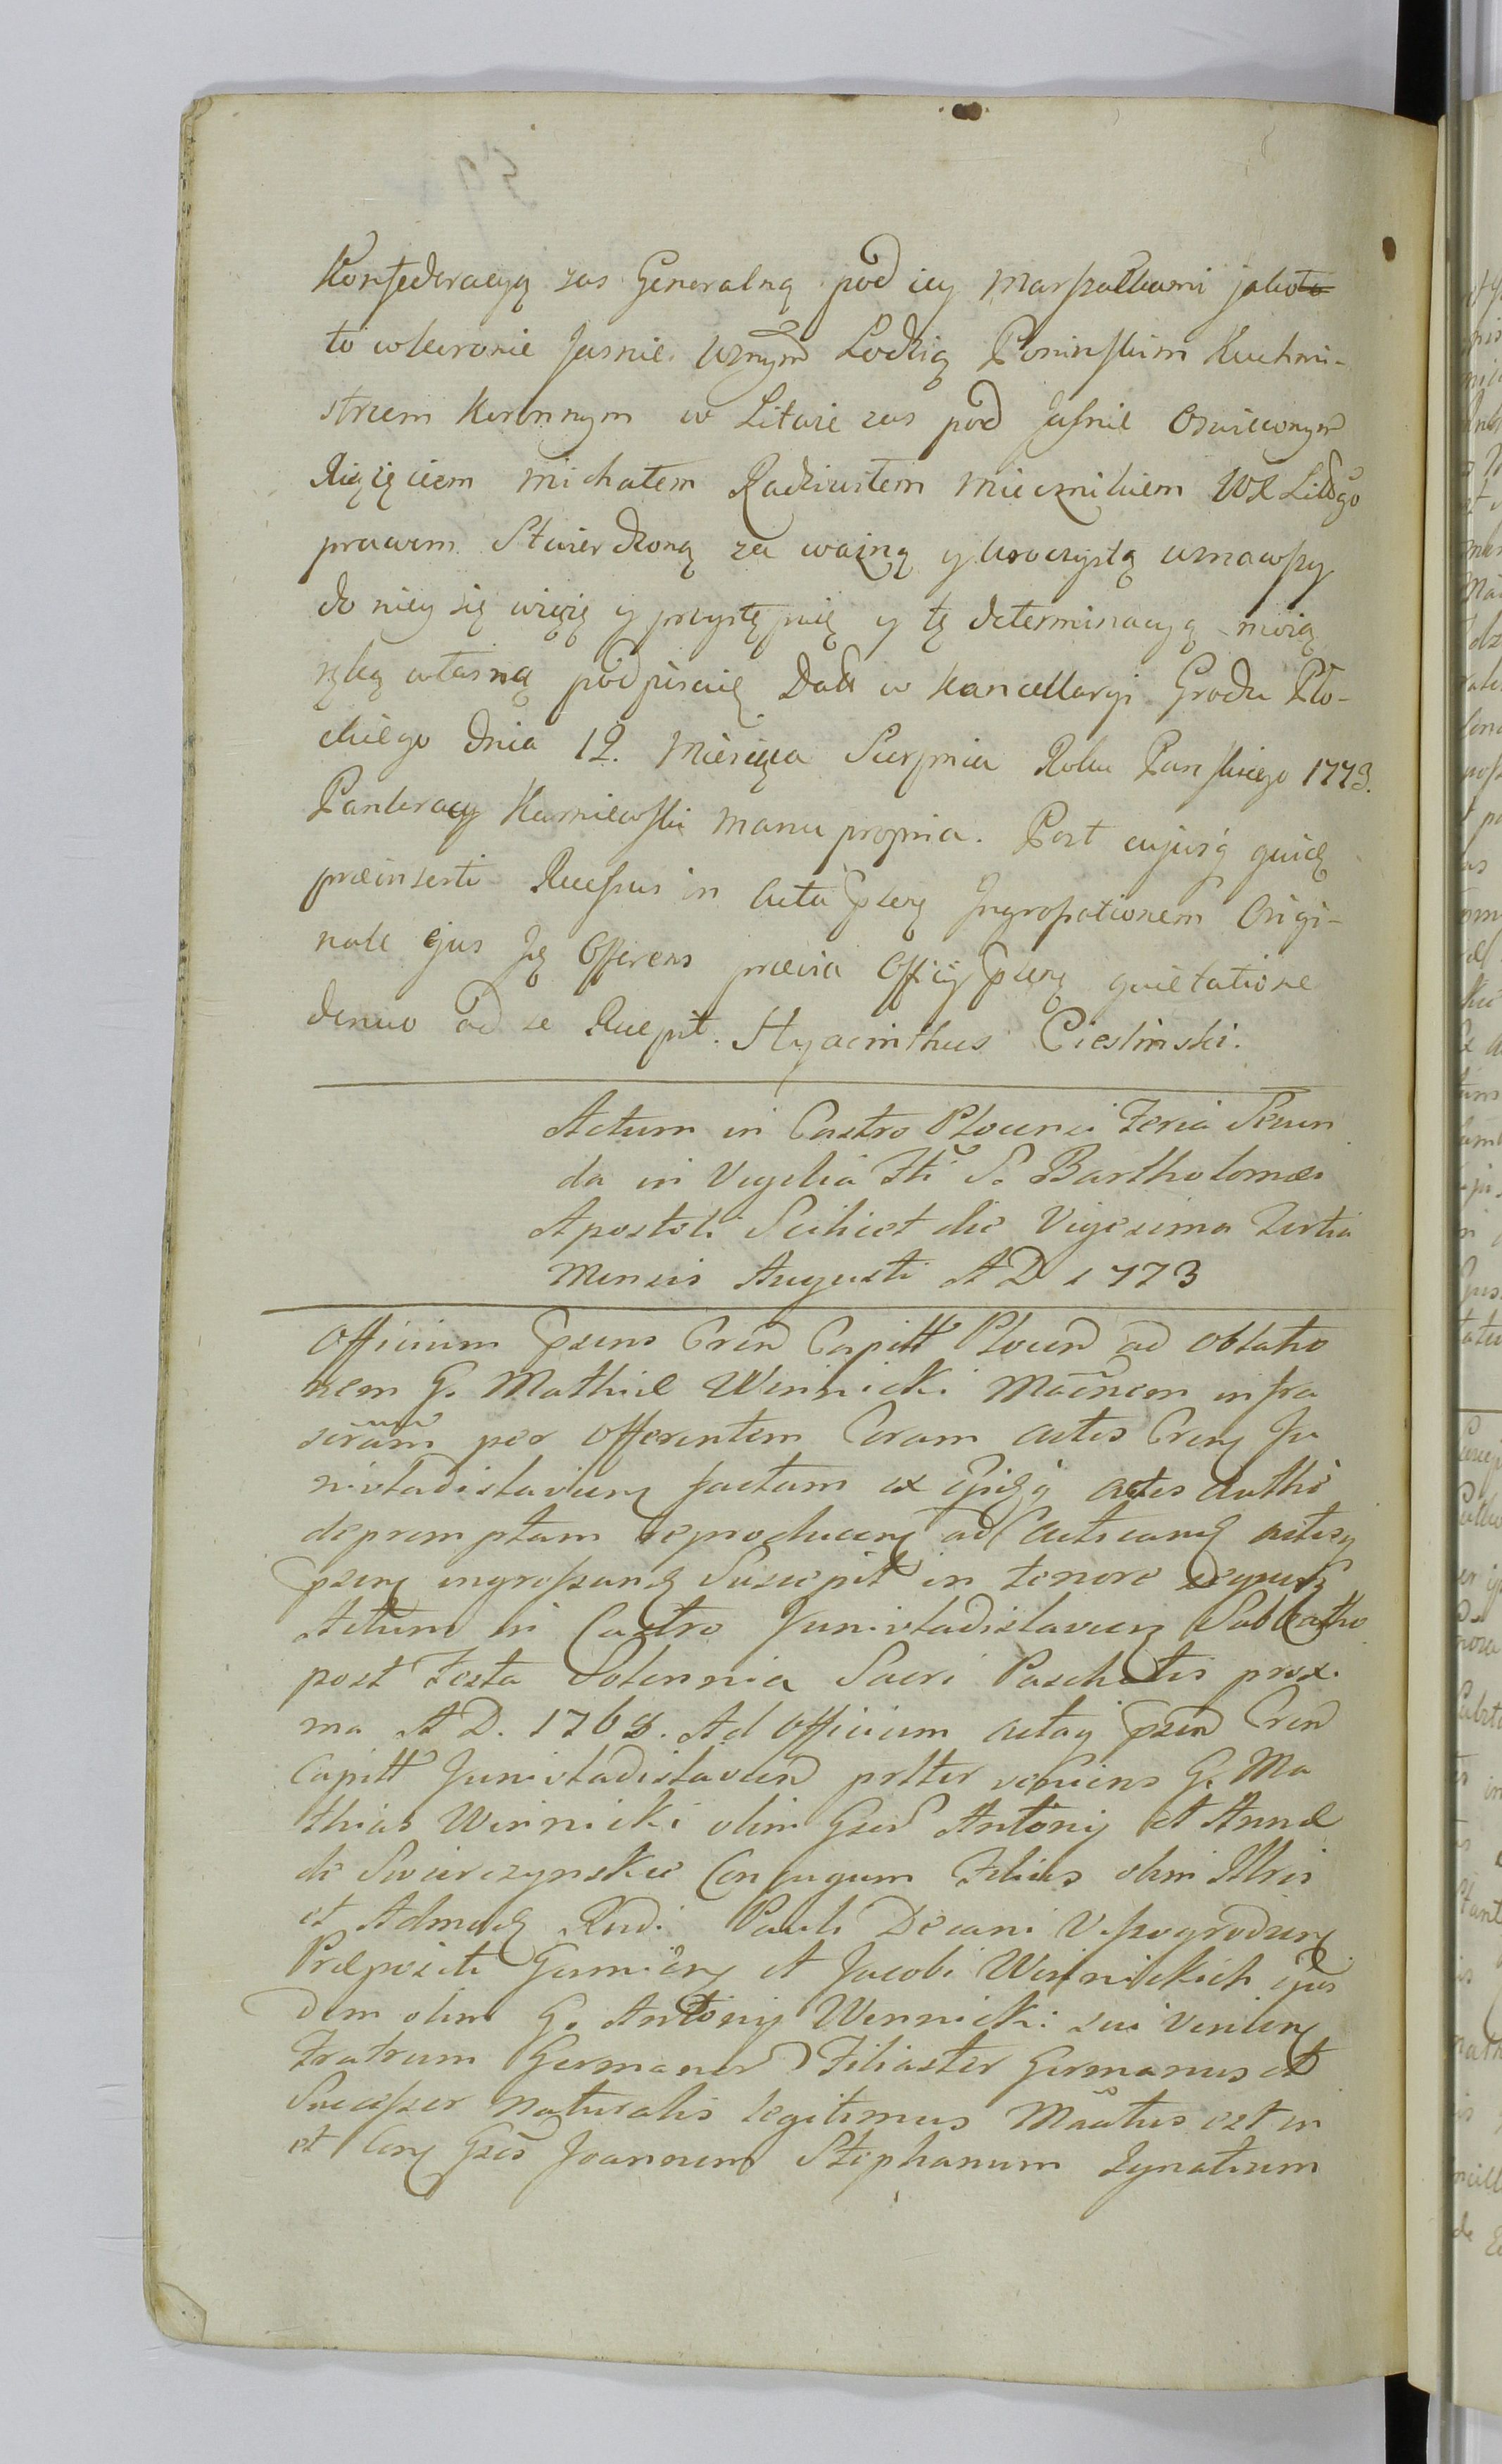 Konfederacyą zas Generalną pod iey Marszałkami jako to
to w koronie Jasnie Wznym̃ Lodzią Poninskim Kuchmi-
strzem Koronnym w Litwie zas pod Jasnie Oswieconym
Xiążęciem Michałem Radziwiłem Miecznikiem WX Littgo
prawem Stwierdzoną za ważną y uroczystą uznawszy
do niey się więżę y przystępuię y tę determinacyą moią
ręką własną podpisuię Datt w kancellaryi Grodu Pło-
ckiego Dnia 12. Miesiąca Sierpnia Roku Panskiego 1773.
Pankracy Karniewski Manu propria. Post cujusq̨ quidę
præinserti Recessus in Acta pseñ Ingrossationem Origi-
nale ejus Ję Offerens prævia Officij pseñ quietatione
denuo ad se Recepit. Hyacinthus Cieslinski.
Actum in Castro Plocensi Feria Secun
da in Vigilia Fti S. Bartholomæi
Apostoli Scilicet die Vigesima Tertia
Mensis Augusti A D 1773
Officium psens Cren Capitt Plocen ad oblatio
nem G. Mathiæ Winnicki Mãčnem infra
scrãm per offerentem Coram Actis Cren Ju
niwladislavien factam ex ijsdeq̨ actis authẽ
depromptam reproducen ad acticand actisq̨
psen ingrossand Suscepit in tenore sequenj
Actum in Castro Juniwladislavien Sabbatho
post Festa Solennia Sacri Paschatis prox.
ma A D. 1768. Ad Officium actaq̨ psen Cren
Capitt Juniwladislavien psltter veniens G. Ma
thias Winnicki olim Gsor Antonij et Annæ
de Swierczynskie Conjugum Filius olim Illris
et Admod Rndi Pauli Decani Vissogroden
Præpositi et Jacobi Winnickich ejus
dem olim G. Antonij Winnicki sui Venien
Fratrum Germanor Filiaster Germanus et
Successor naturalis legitimus Mãatus est in
et Con Gsos Joannem Stephanum Ignatium